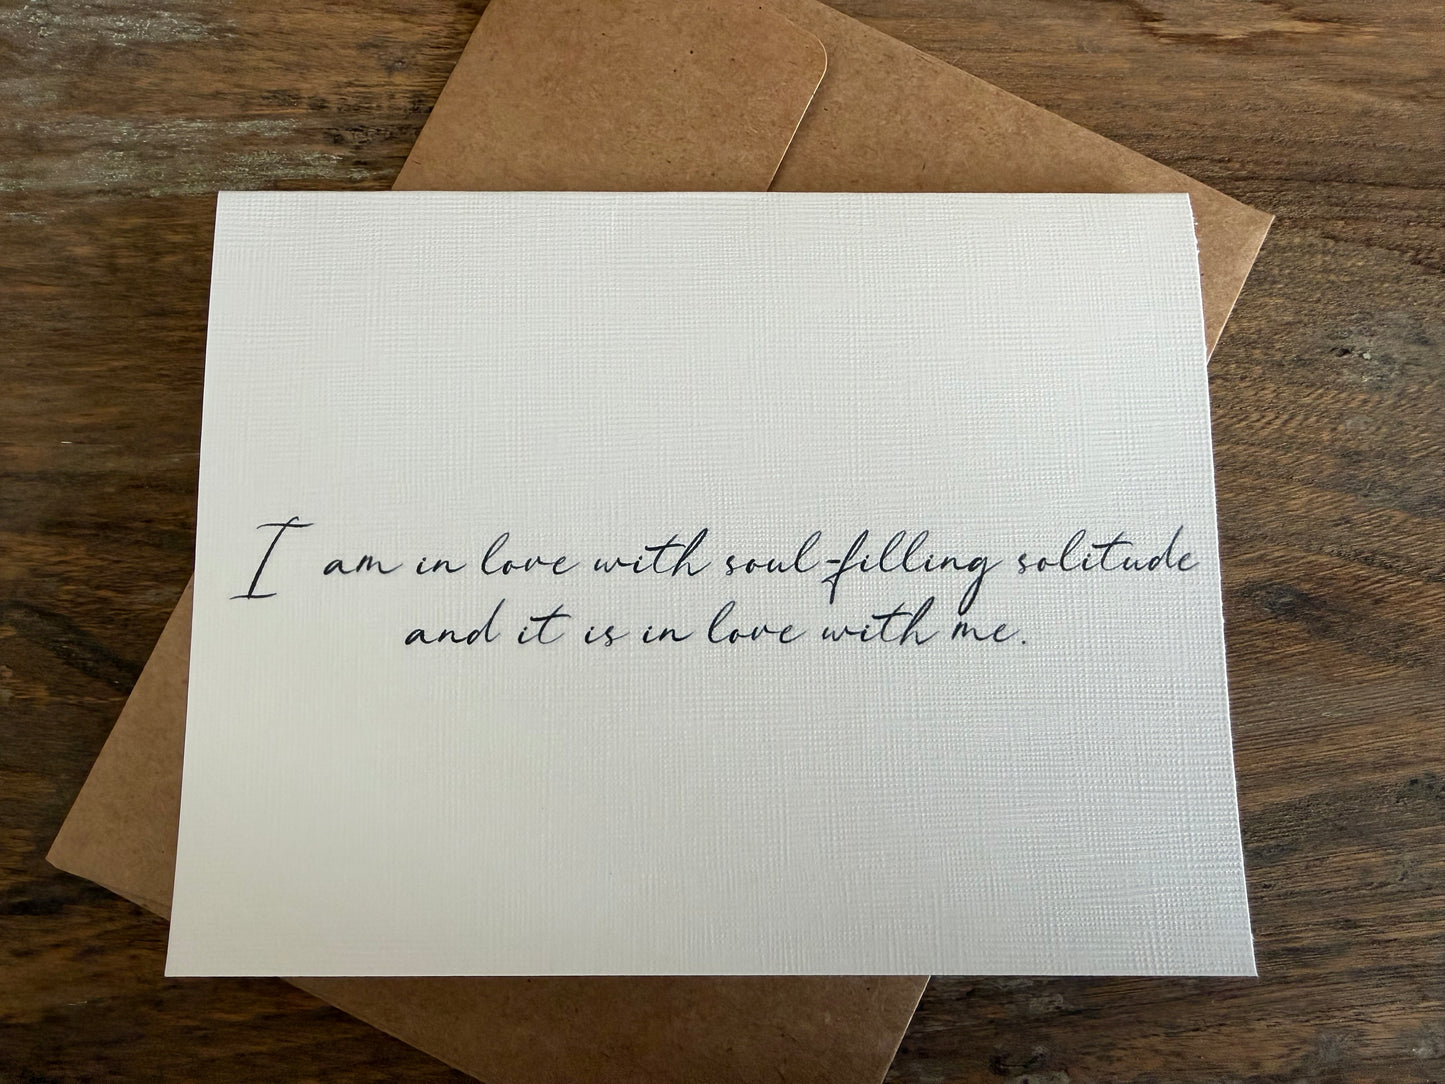 I am in love with soul-filling solitude
and it is in love with me.